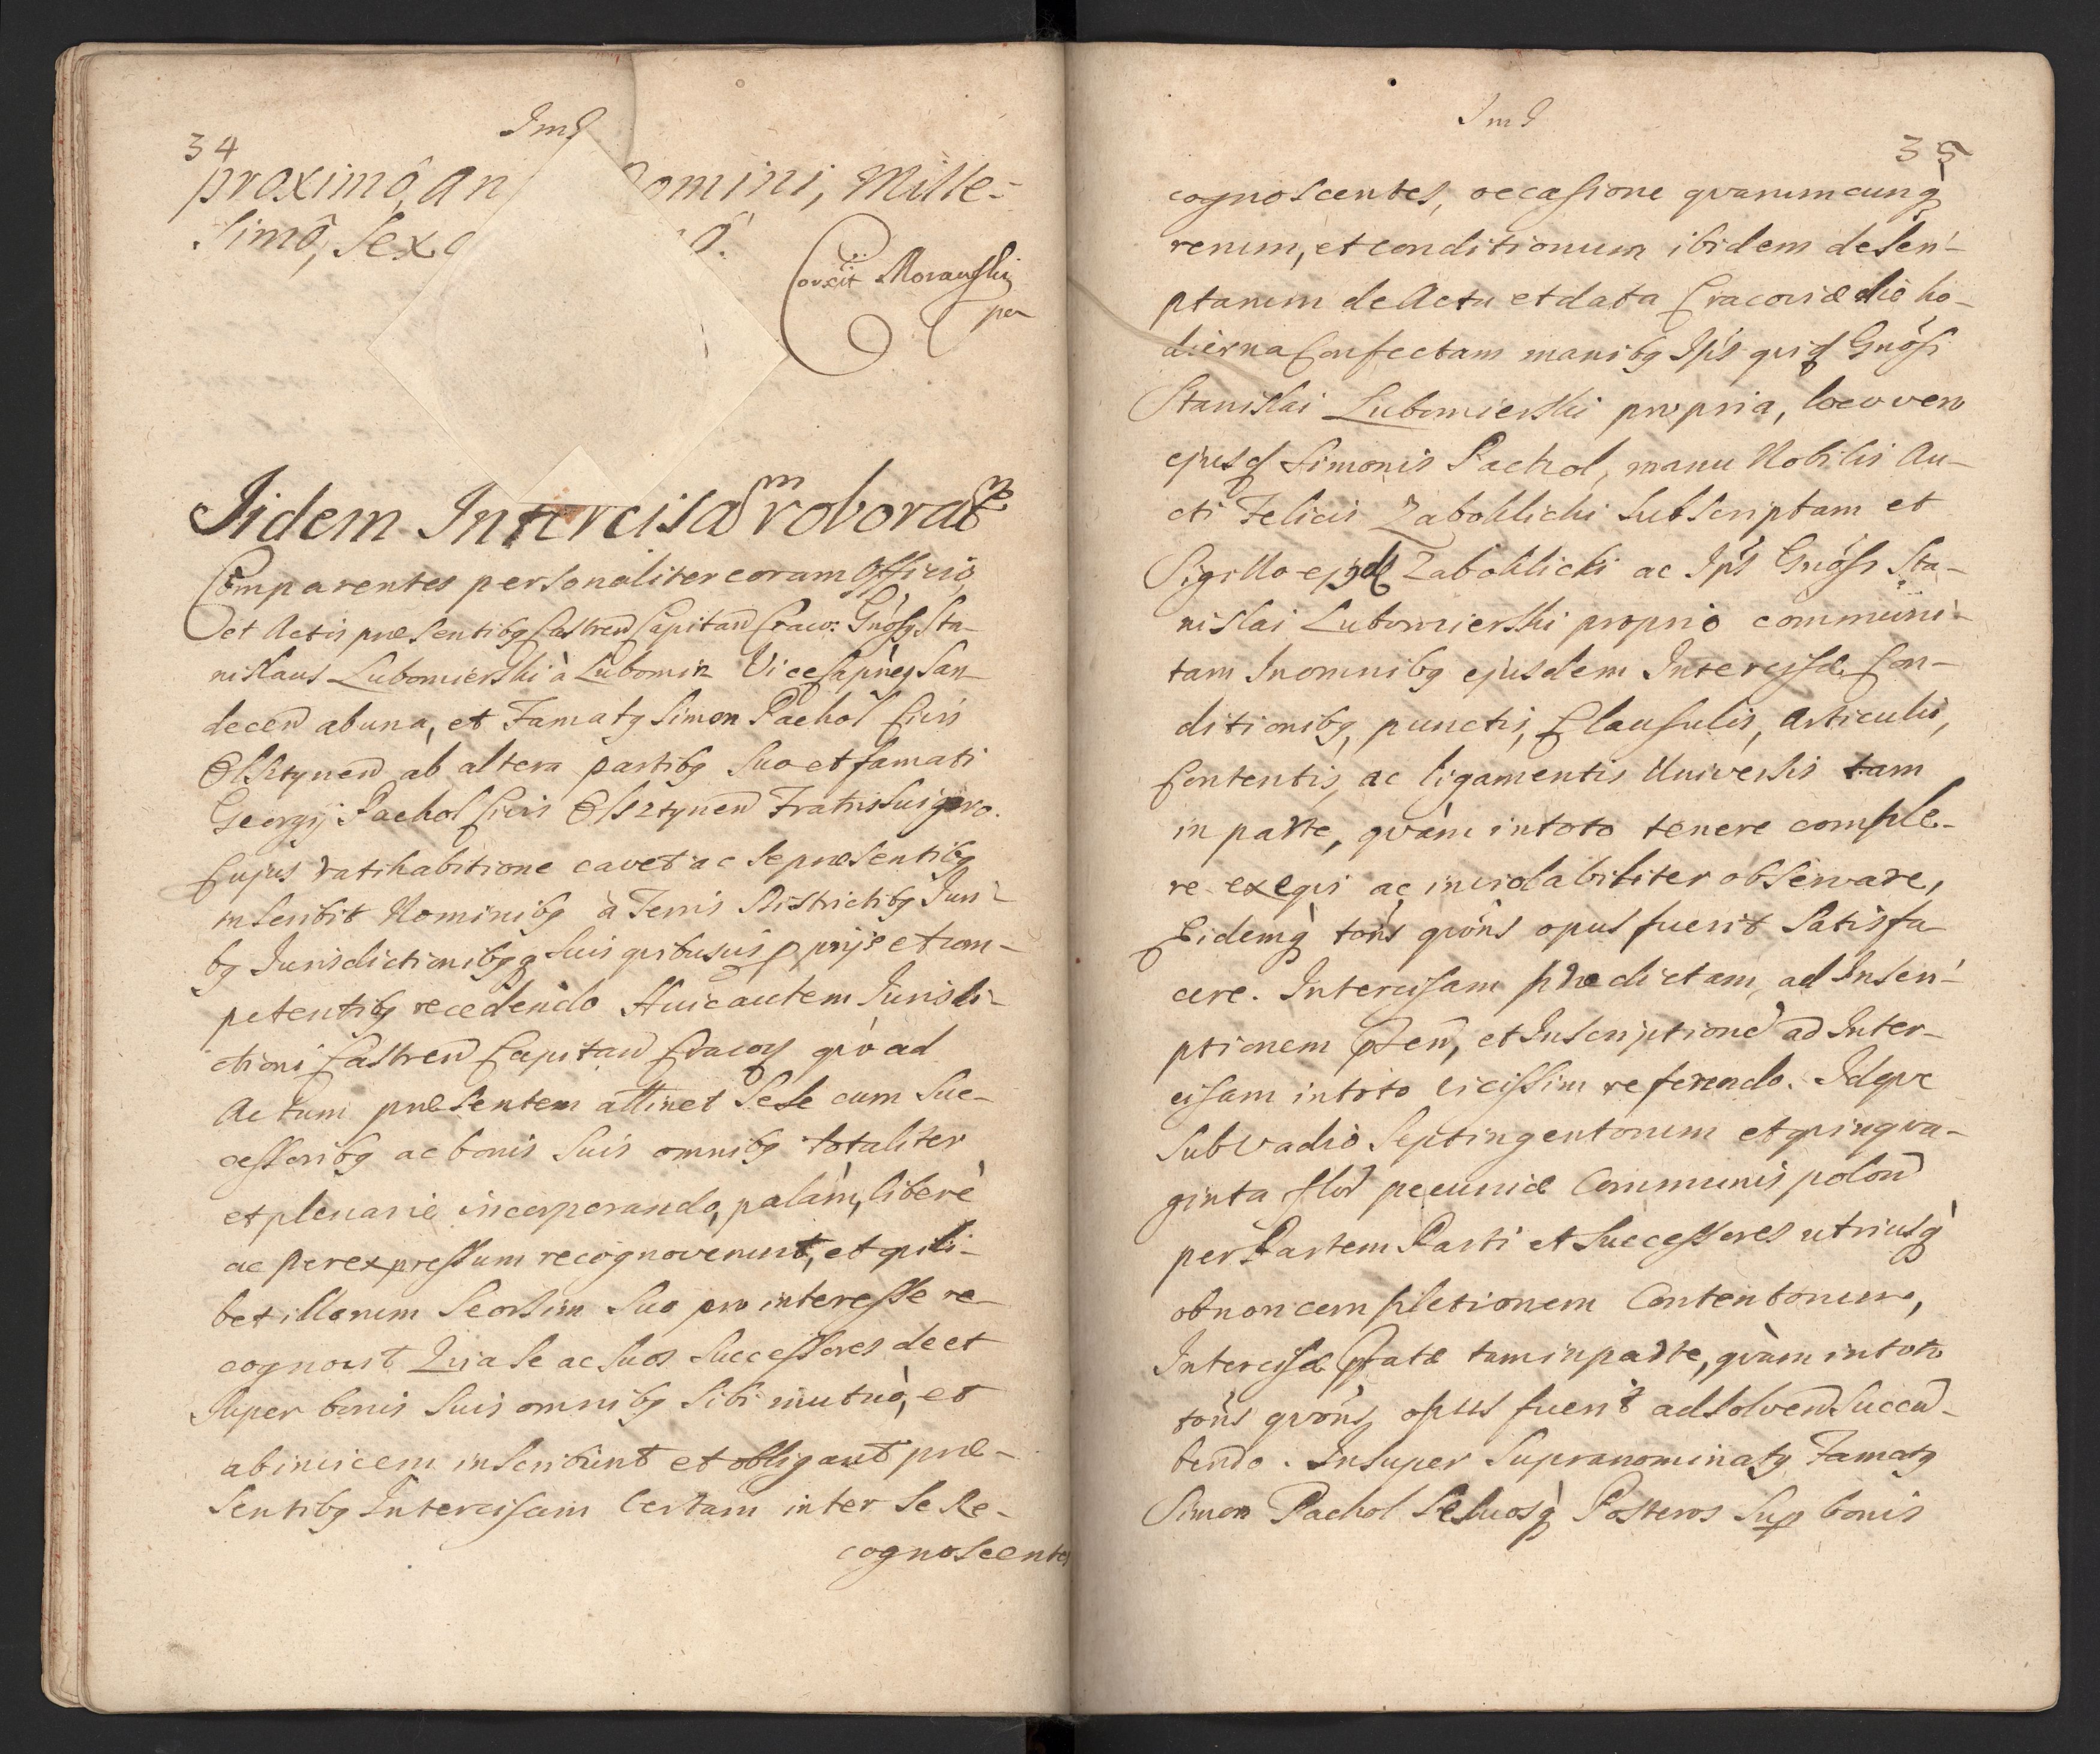 34
proximô, An Domini, Mille-
simô, Sexa ô.
Corexit Morawski
Jidem Intercisam roborat
Comparentes personaliter coram Officio
et Actis præsentibq Castren Capitan Craco: Gnosq Sta-
nislaus Lubomierski à Lubomir Vicesapneq San-
decen ab una, et Famatq Simon Pachol Civis
Olsztynen ab altera partibq suo et famati
Georgij Pachol Civis Olsztynen Fratris sui pro.
Cujus ratihabitione cavet ac se præsentibq
inscribit Nominibq à Terris Districtibq Juri-
bq Jurisdictionibqq suis quibusvis pprijs et com-
petentibq recedendo Huic autem Jurisdi-
ctioni Castren Capitan Cracov qvò ad
Actum præsentem attinet Sese cum Suc-
cessoribq ac bonis suis omnibq totaliter
et plenarie incorporando, palàm, liberè
ac per expressum recognoverunt, et quili-
bet illorum Seorsim suo pro interesse re-
cognovit Quia se ac suos Successores de et
super bonis suis omnibq sibi mutuò, et
ab invicem inscribunt et obligant præ-
sentibq Intercisam Certam inter se Re-
cognoscentes
35
cognoscentes, occasione qvarumcunq
rerum, et conditionum ibidem descri-
ptarum de Actu et data Cracoviæ die ho-
dierna Confectam manibq Ips quid Gnosi
Stanislai Lubomierski propria, loco vero
ejusd Simonis Pachol, manu Nobilis Au-
cti Felicis Zaboklicki subscriptam et
Sigillo ejqd Zaboklicki ac Ips Gnosi Sta-
nislai Lubomierski proprio communi-
tam In omnibq ejusdem Intercisæ Con-
ditionibq, punctis, Clausulis, Articulis,
Contentis, ac ligamentis Universis tam
in parte, qvàm in toto tenere comple-
re exeqvi ac inviolabiliter observare,
Eidemq tons qvòns opus fuerit Satisfa-
cere. Intercisam prædictam, ad Inscri-
ptionem pñen, et Inscriptione ad Inter-
cisam in toto vicissim referendo. Idqve
Sub vadio Septingentorum et qvinqva-
ginta flor pecuniæ Communis polon
per Partem Parti et Successores utriusq
ob non completionem Contentorum,
Intercisæ pfatæ tam in parte, qvàm in toto
tons qvòns opus fuerit ad solven Succu-
bendo. Insuper Supranominatq Famatq
Simon Pachol Se Suosq Posteros Sup bonis